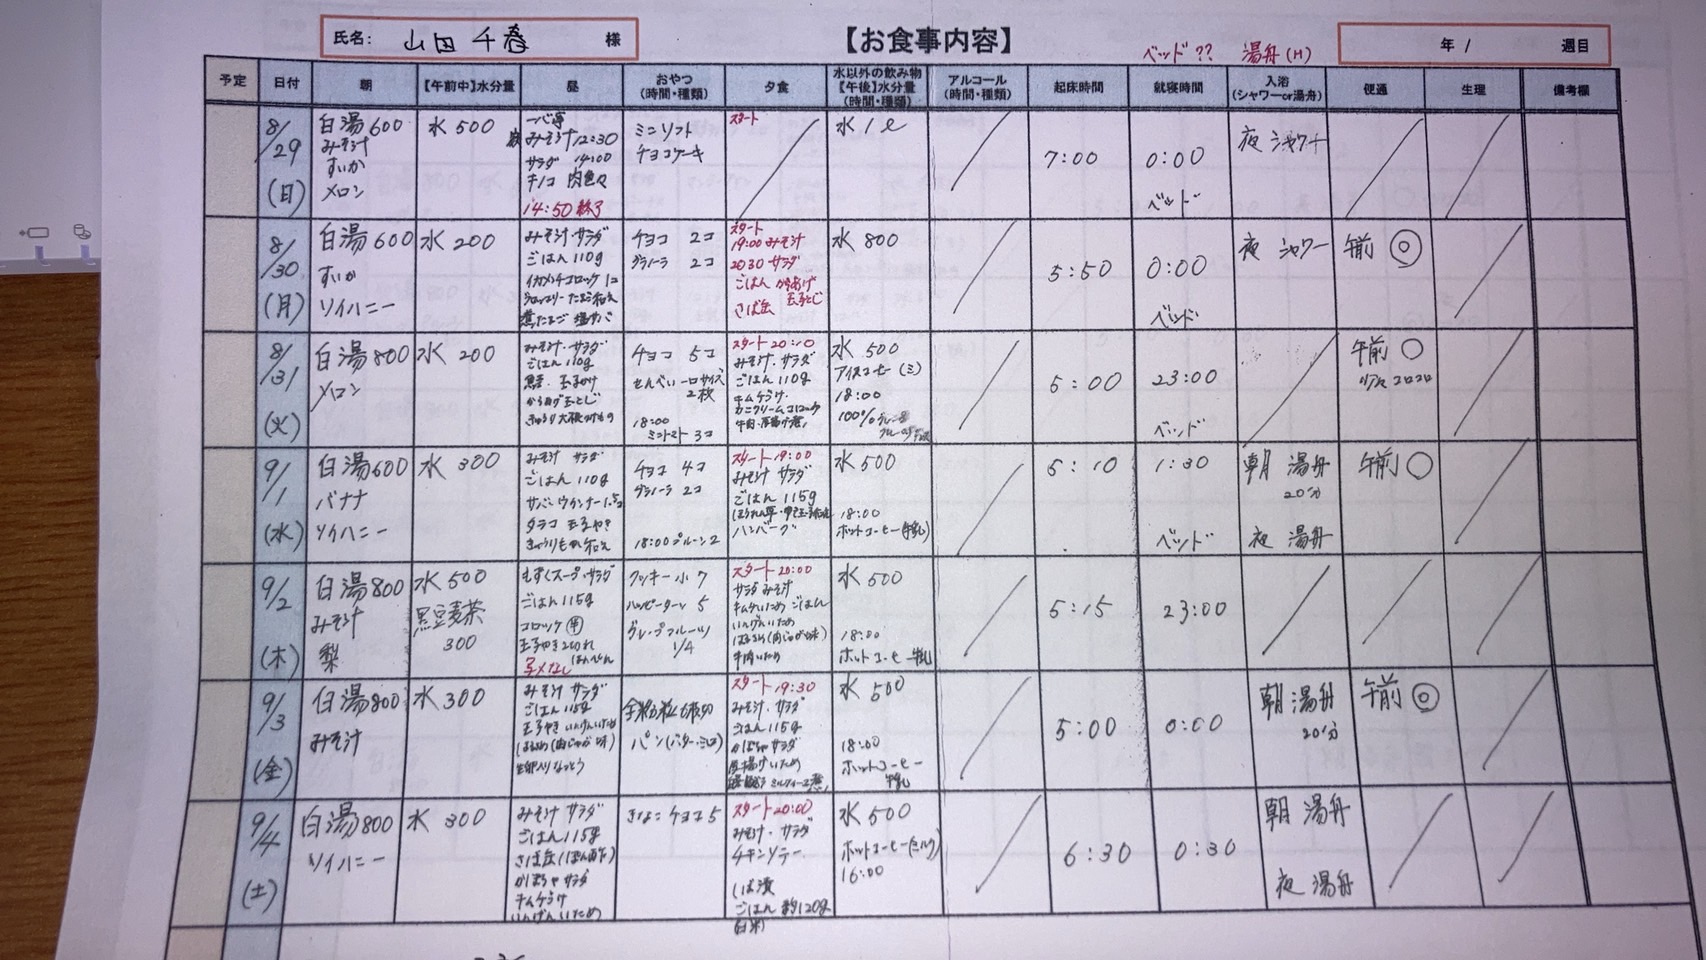 氏名: 山田千春 様
【お食事内容】
ベッド?? 湯舟(H)
年 / 週目
予定 日付 朝 【午前中】水分量 昼 おやつ (時間・種類) 夕食 水以外の飲み物 【午後】水分量 (時間・種類) アルコール (時間・種類) 起床時間 就寝時間 入浴 (シャワーor湯舟) 便通 生理 備考欄
8/29 (日)
白湯600
みそ汁
すいか
メロン
水 500
みそ汁 12:30
サラダ 14:00
キノコ 肉色々
14:50 終了
ミニソフト
チョコケーキ
スタート
水 1ℓ
7:00
0:00
ベッド
夜 シャワー
8/30 (月)
白湯600
すいか
ソイハニー
水 200
みそ汁 サラダ
ごはん 110g
イカメンチコロッケ 1コ
ブロッコリー たまご和え
塩サバ
チョコ 2コ
グラノーラ 2コ
スタート
19:00 みそ汁
20:30 サラダ
ごはん からあげ
玉子とじ
さば缶
水 800
5:50
0:00
ベッド
夜 シャワー
午前 ◎
8/31 (火)
白湯800
メロン
水 200
みそ汁・サラダ
ごはん 110g
からあげ玉とじ
きゅうり大根つけもの
チョコ 5コ
せんべい 一口サイズ
2枚
18:00
ミニトマト 3コ
スタート 20:10
みそ汁・サラダ
ごはん 110g
キムチ
カニクリームコロッケ
水 500
アイスコーヒー(ミ)
18:00
100%
5:00
23:00
ベッド
午前 ○
少々コロコロ
9/1 (水)
白湯600
バナナ
ソイハニー
水 300
みそ汁 サラダ
ごはん 110g
タラコ 玉子やき
チョコ 4コ
グラノーラ 2コ
18:00 プルーン2
スタート 19:00
みそ汁 サラダ
ごはん 115g
ハンバーグ
水 500
18:00
ホットコーヒー(牛乳)
5:10
1:30
ベッド
朝 湯舟
20分
夜 湯舟
午前 ○
9/2 (木)
白湯800
みそ汁
梨
水 500
黒豆麦茶
300
もずくスープ・サラダ
ごはん 115g
コロッケ㊥
玉子やき2切れ
写メなし はんぺん
クッキー小 7
ハッピーターン 5
グレープフルーツ
1/4
スタート 20:00
サラダ みそ汁
キムチいため ごはん
いんげんいため
はるさめ(肉じゃが味)
牛肉いため
水 500
18:00
ホットコーヒー 牛乳
5:15
23:00
9/3 (金)
白湯800
みそ汁
水 300
みそ汁 サラダ
ごはん 115g
玉子やき いんげんいため
はるさめ(肉じゃが味)
なっとう
パン
スタート 19:30
みそ汁・サラダ
ごはん 115g
かぼちゃサラダ
厚揚げいため
水 500
18:00
ホットコーヒー
牛乳
5:00
0:00
朝 湯舟
20分
午前 ◎
9/4 (土)
白湯800
ソイハニー
水 300
みそ汁 サラダ
ごはん 115g
さば缶
かぼちゃサラダ
キムチ
いんげんいため
きなこチョコ5
スタート 20:00
みそ汁・サラダ
チキンソテー
しば漬
ごはん 約120g
(白米)
水 500
ホットコーヒー(ミルク)
16:00
6:30
0:30
朝 湯舟
夜 湯舟